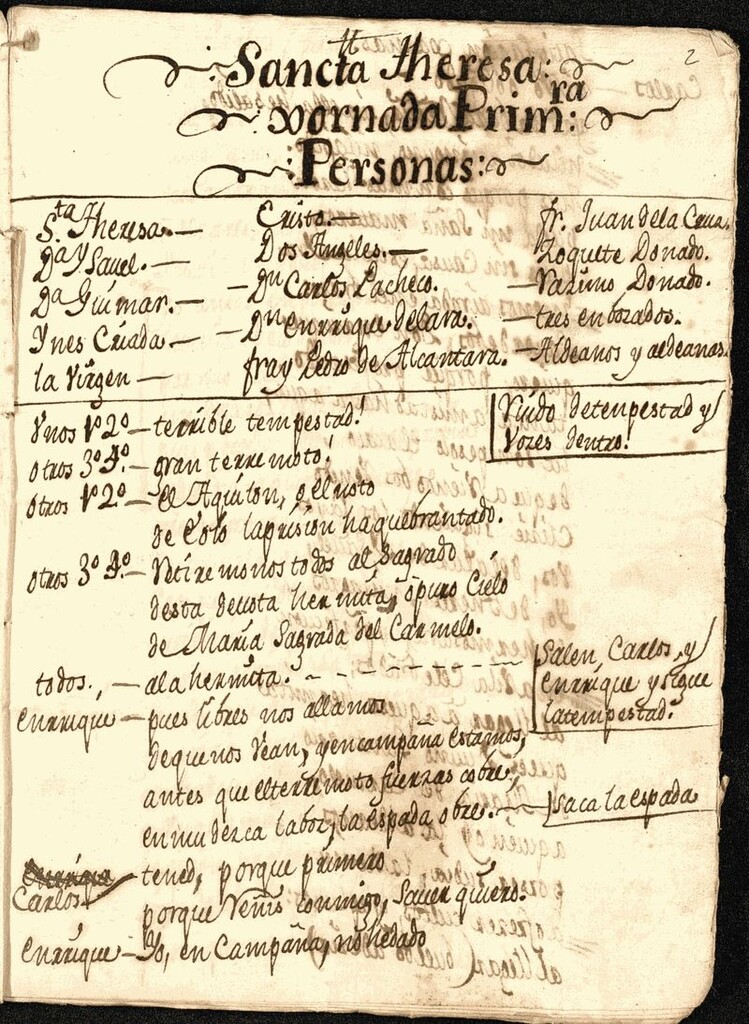 2
Sancta Theresa:
Jornada Prim:ra
:Personas:
S.ta Theresa.— Cristo.— fr. Juan dela Cruz.
D.a Ysavel.— Dos Angeles.— Zoquete Donado.
D.a Guimar.— — D.n Carlos Pacheco. — Donado.
Ynes Criada — — D.n Enrrique de Lara. — tres enbozados.
la Virgen — fray Pedro de Alcantara. — Aldeanos y aldeanas.
Vnos 1º 2º — terrible tempestad! Ruido de tenpestad y
otros 3º 4º — gran terremoto! Vozes dentro!
otros 1º 2º — el Aquilon, o el noto
de Eolo la prision ha quebrantado.
otros 3º 4º — Retiremonos todos al Sagrado
desta devota hermita, o puro Cielo
de Maria Sagrada del Carmelo. Salen, Carlos, y
todos., — ala hermita. Enrrique y sigue
Enrrique — pues libres nos allamos la tempestad.
de que nos Vean, y en campaña estamos,
antes que el terremoto fuerzas cobre,
enmudezca la boz, la espada obre. — saca la espada
Carlos tened, porque primero
porque Venis conmigo, saver quiero.
Enrrique — Yo, en Campaña, no he dado